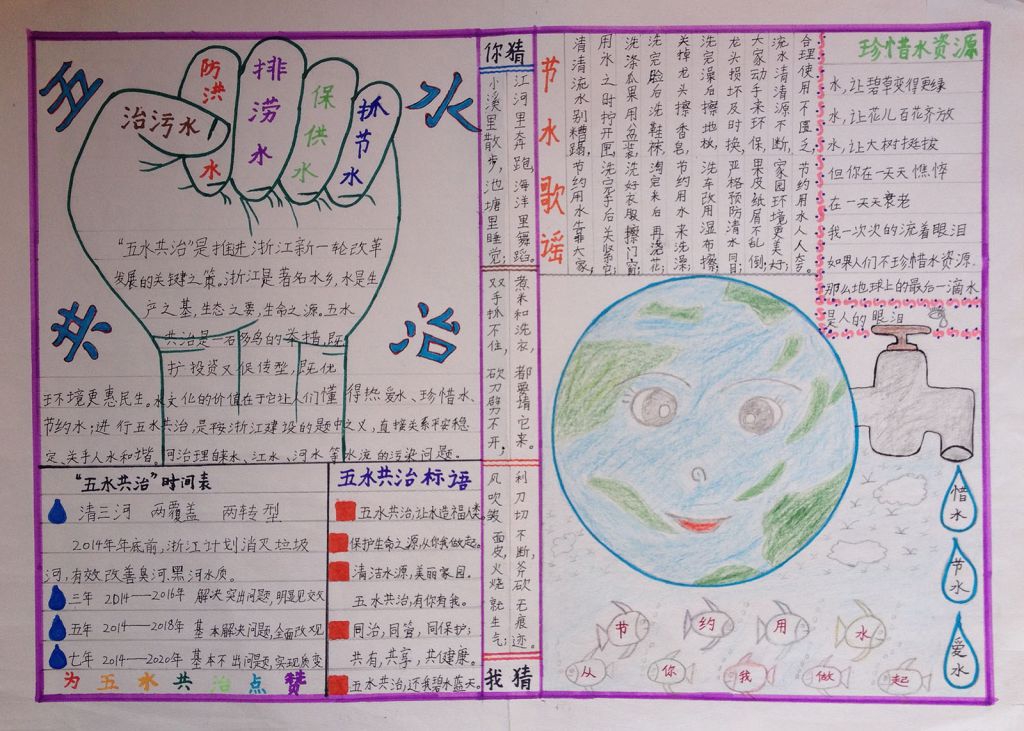 五水共治
治污水
防洪水
排涝水
保供水
抓节水
“五水共治”是推进浙江新一轮改革
发展的关键之策。浙江是著名水乡，水是生
产之基，生态之要，生命之源，五水
共治是一石多鸟的举措，既
扩投资又促转型，既优
环境更惠民生。水文化的价值在于它让人们懂得热爱水、珍惜水、
节约水；进行五水共治，是按浙江建设的题中之义，直接关系平安稳
定、关乎人水和谐。
“五水共治”时间表
清三河 两覆盖 两转型
2014年年底前，浙江计划消灭垃圾
河，有效改善臭河.黑河水质。
三年 2014——2016年 解决突出问题，明显见交效
五年 2014——2018年 基本解决问题，全面改观
七年 2014——2020年 基本不出问题，实现质变
为五水共治点赞
五水共治标语
五水共治，让水造福人类。
保护生命之源，从你我做起。
清洁水源，美丽家园。
五水共治，有你有我。
同治，同管，同保护；
共有，共享，共健康。
五水共治，还我碧水蓝天。
你猜
江河里奔跑，海洋里舞蹈。
小溪里散步，池塘里睡觉
煮米和洗衣，都要请它来。
双手抓不住，砍刀劈不开；
利刀切不断，斧砍无痕迹
风吹皱面皮，火烧就生气；
我猜
节水歌谣
合理使用不匮乏，节约用水人人夸。
流水清清源不断，家园环境更美好；
大家动手来环保，果皮纸屑不乱倒；
龙头损坏及时换，严格预防清水冒；
洗完澡后擦地板，洗车改用湿布擦；
关掉龙头擦香皂，节约用水来洗澡；
洗完脸后洗鞋袜，淘完米后再浇花；
洗涤瓜果用盆装，洗好衣服擦门窗；
用水之时拧开匣，洗完手后关紧它；
清清流水别糟蹋，节约用水靠大家，
珍惜水资源
水，让碧草变得更绿
水，让花儿百花齐放
水，让大树挺拔
但你在一天天憔悴
在一天天衰老
我一次次的流着眼泪
如果人们不珍惜水资源
那么地球上的最后一滴水
是人的眼泪
惜水
节水
爱水
节约用水
从你我做起